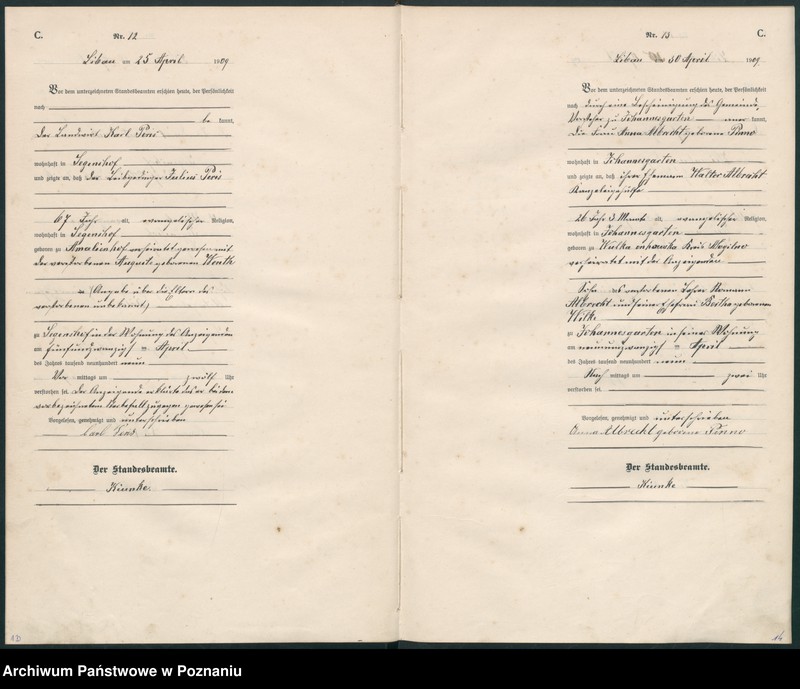 C.
Nr. 12
Libau am 25 April 1909
Vor dem unterzeichneten Standesbeamten erschien heute, der Persönlichkeit
nach
be kannt,
der Landwirt Karl
wohnhaft in
und zeigte an, daß der Julius
67 Jahr alt, evangelischer Religion,
wohnhaft in
geboren zu Amalienhof verheiratet gewesen mit
der verstorbenen Auguste geborenen
= (Angabe über die Eltern des
verstorbenen unbekannt)
zu in der Wohnung des Anzeigenden
am fünfundzwanzigst = April
des Jahres tausend neunhundert neun
Vor mittags um zwölf Uhr
verstorben sei. Der Anzeigende erklärte daß er bei dem
vorbezeichneten Sterbefall zugegen gewesen sei
Vorgelesen, genehmigt und unterschrieben
Carl
Der Standesbeamte.
Kiunke.
13
Nr. 13
C.
Libau am 30 April 1909
Vor dem unterzeichneten Standesbeamten erschien heute, der Persönlichkeit
nach durch eine Bescheinigung des Gemeinde,
Vorsteher zu Johannesgarten aner kannt,
die Frau Anna Albrecht geborene Pinno
wohnhaft in Johannesgarten
und zeigte an, daß ihr Ehemann Walter Albrecht
Kanzleigehülfe
26 Jahr 3 Monate alt, evangelischer Religion,
wohnhaft in Johannesgarten
geboren zu Kreis Mogilno
verheiratet mit der Anzeigenden
Sohn des verstorbenen Lehrer Hermann
Albrecht und seiner Ehefrau Bertha geborenen
Wilk
zu Johannesgarten in seiner Wohnung
am neunundzwanzigst = April
des Jahres tausend neunhundert neun
Nach mittags um zwei Uhr
verstorben sei.
Vorgelesen, genehmigt und unterschrieben
Anna Albrecht geborene Pinno
Der Standesbeamte.
Kiunke
14
Archiwum Państwowe w Poznaniu